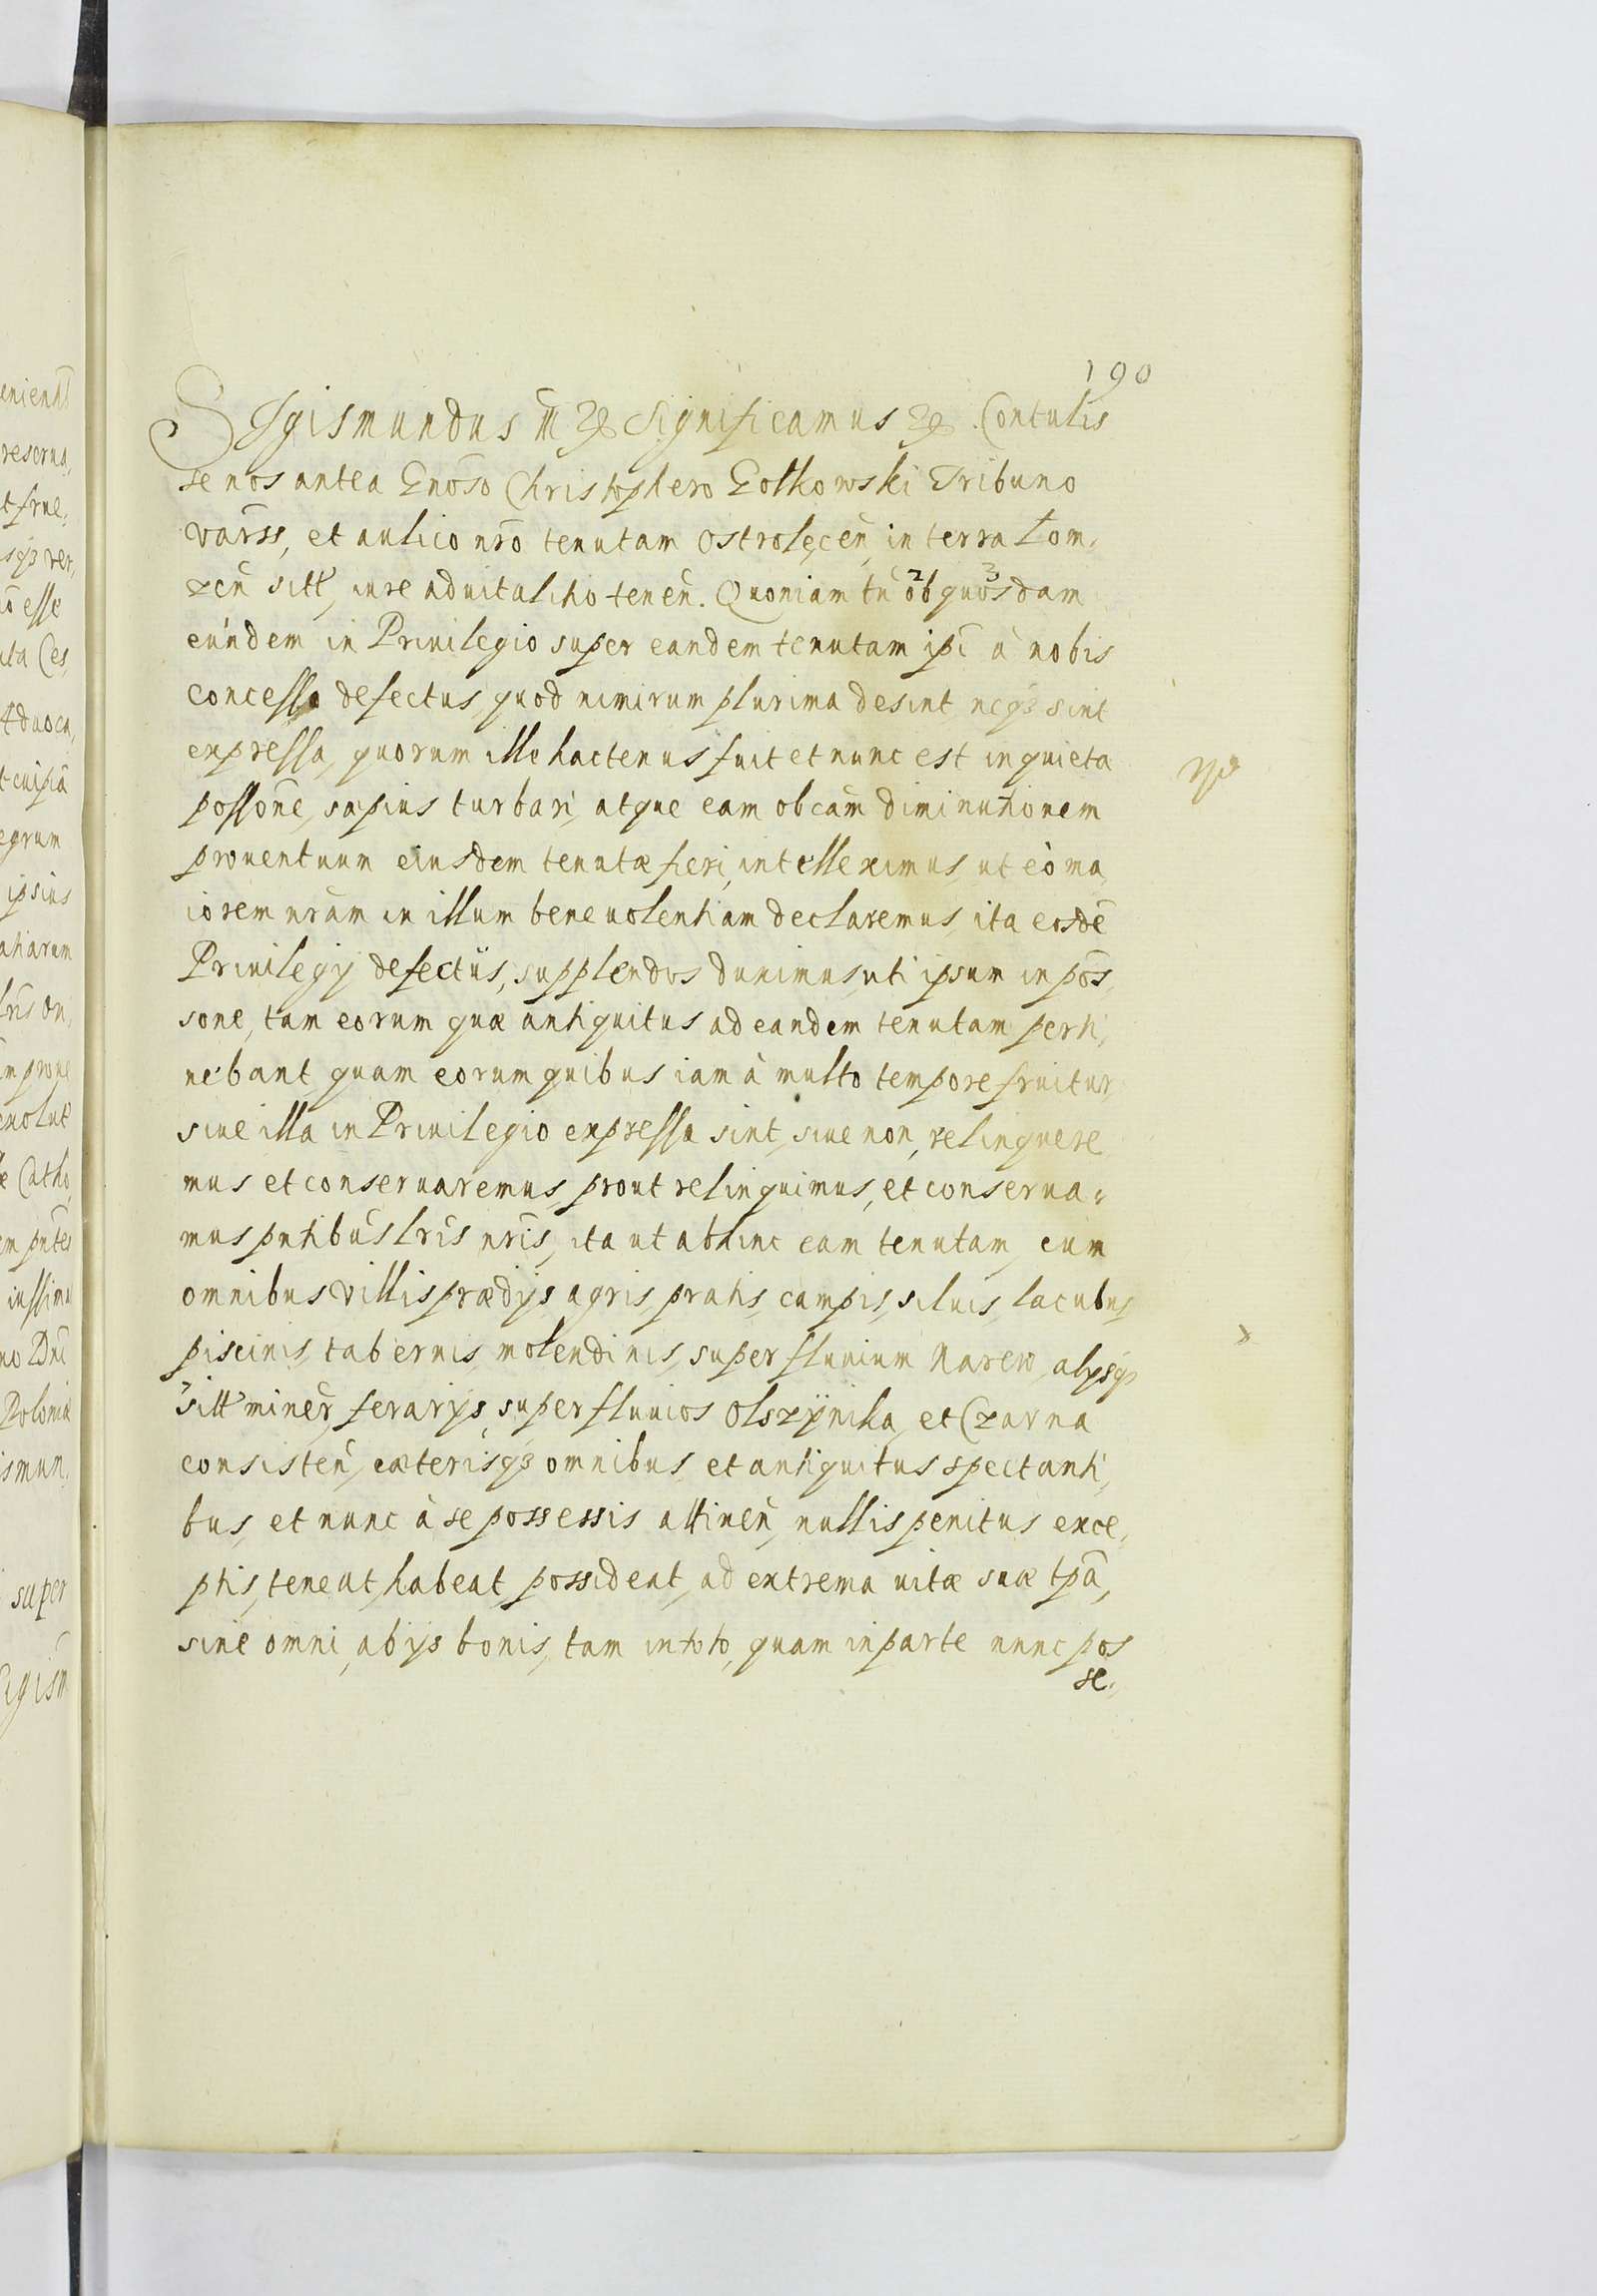 190
Sigismundus III &c Significamus &c. Contulis
se nos antea Gnõso Christophero Gotkowski Tribuno
Varss, et aulico nrõ tenutam Ostrolęceñ in terra Lom,
zeñ sitt, iure aduitalitio teneñ. Quoniam tñ ob quosdam
eúndem in Priuilegio super eandem tenutam ipĩ à nobis
concesso defectus, quod nimirum plurima desint neq3 sint
expressa, quorum ille hactenus fuit et nunc est in quieta
possone, sæpius turbari, atque eam ob cam̃ diminutionem
prouentuum eiusdem tenutæ fieri, intelleximus, ut eò ma,
iorem nram̃ in illum beneuolentiam declaremus, ita eosdẽ
Priuilegij defectũs, supplendos duximus, uti ipsum in pos̃,
sone, tam eorum quæ antiquitus ad eandem tenutam perti,
nebant quam eorum quibus iam à multo tempore fruitur,
siue illa in Priuilegio expressa sint, siue non, relinquere
mus et conseruaremus, prout relinquimus, et conserua,
mus pntibus̃ lris̃ nris̃, ita ut abhinc eam tenutam, cum
omnibus Villis prædijs agris, pratis, campis, siluis, lacubus,
piscinis, tabernis, molendinis, super fluuium Narew, alysq3
sitt miner̃, ferarijs, super fluuios Olszÿnika, et Czarna
consisteñ, cæterisq3 omnibus et antiquitus spectanti,
bus, et nunc à se possessis attineñ, nullis penitus exce,
ptis, teneat, habeat, possideat, ad extrema uitæ suæ tpã,
sine omni, ab ijs bonis, tam in toto, quam in parte nunc pos
se,